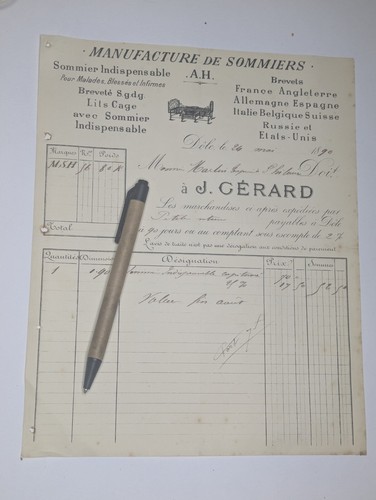 MANUFACTURE DE SOMMIERS
Sommier Indispensable
Pour Malades, Blessés et Infirmes
Breveté S.g.dg.
Lits Cage
avec Sommier
Indispensable
A.H.
Brevets
France Angleterre
Allemagne Espagne
Italie Belgique Suisse
Russie et
Etats-Unis
Dôle le 26 1890
Marques Nos Poids
M.S.H 76 80 K
Total
Doit
à J. GÉRARD
Les marchandises ci après expédiées par
payables à Dôle
à 90 jours ou au comptant sous escompte de 2 %
Quantités Dimensions Désignation Prix Sommes
1 0.90 Sommier Indispensable
Valeur fin août